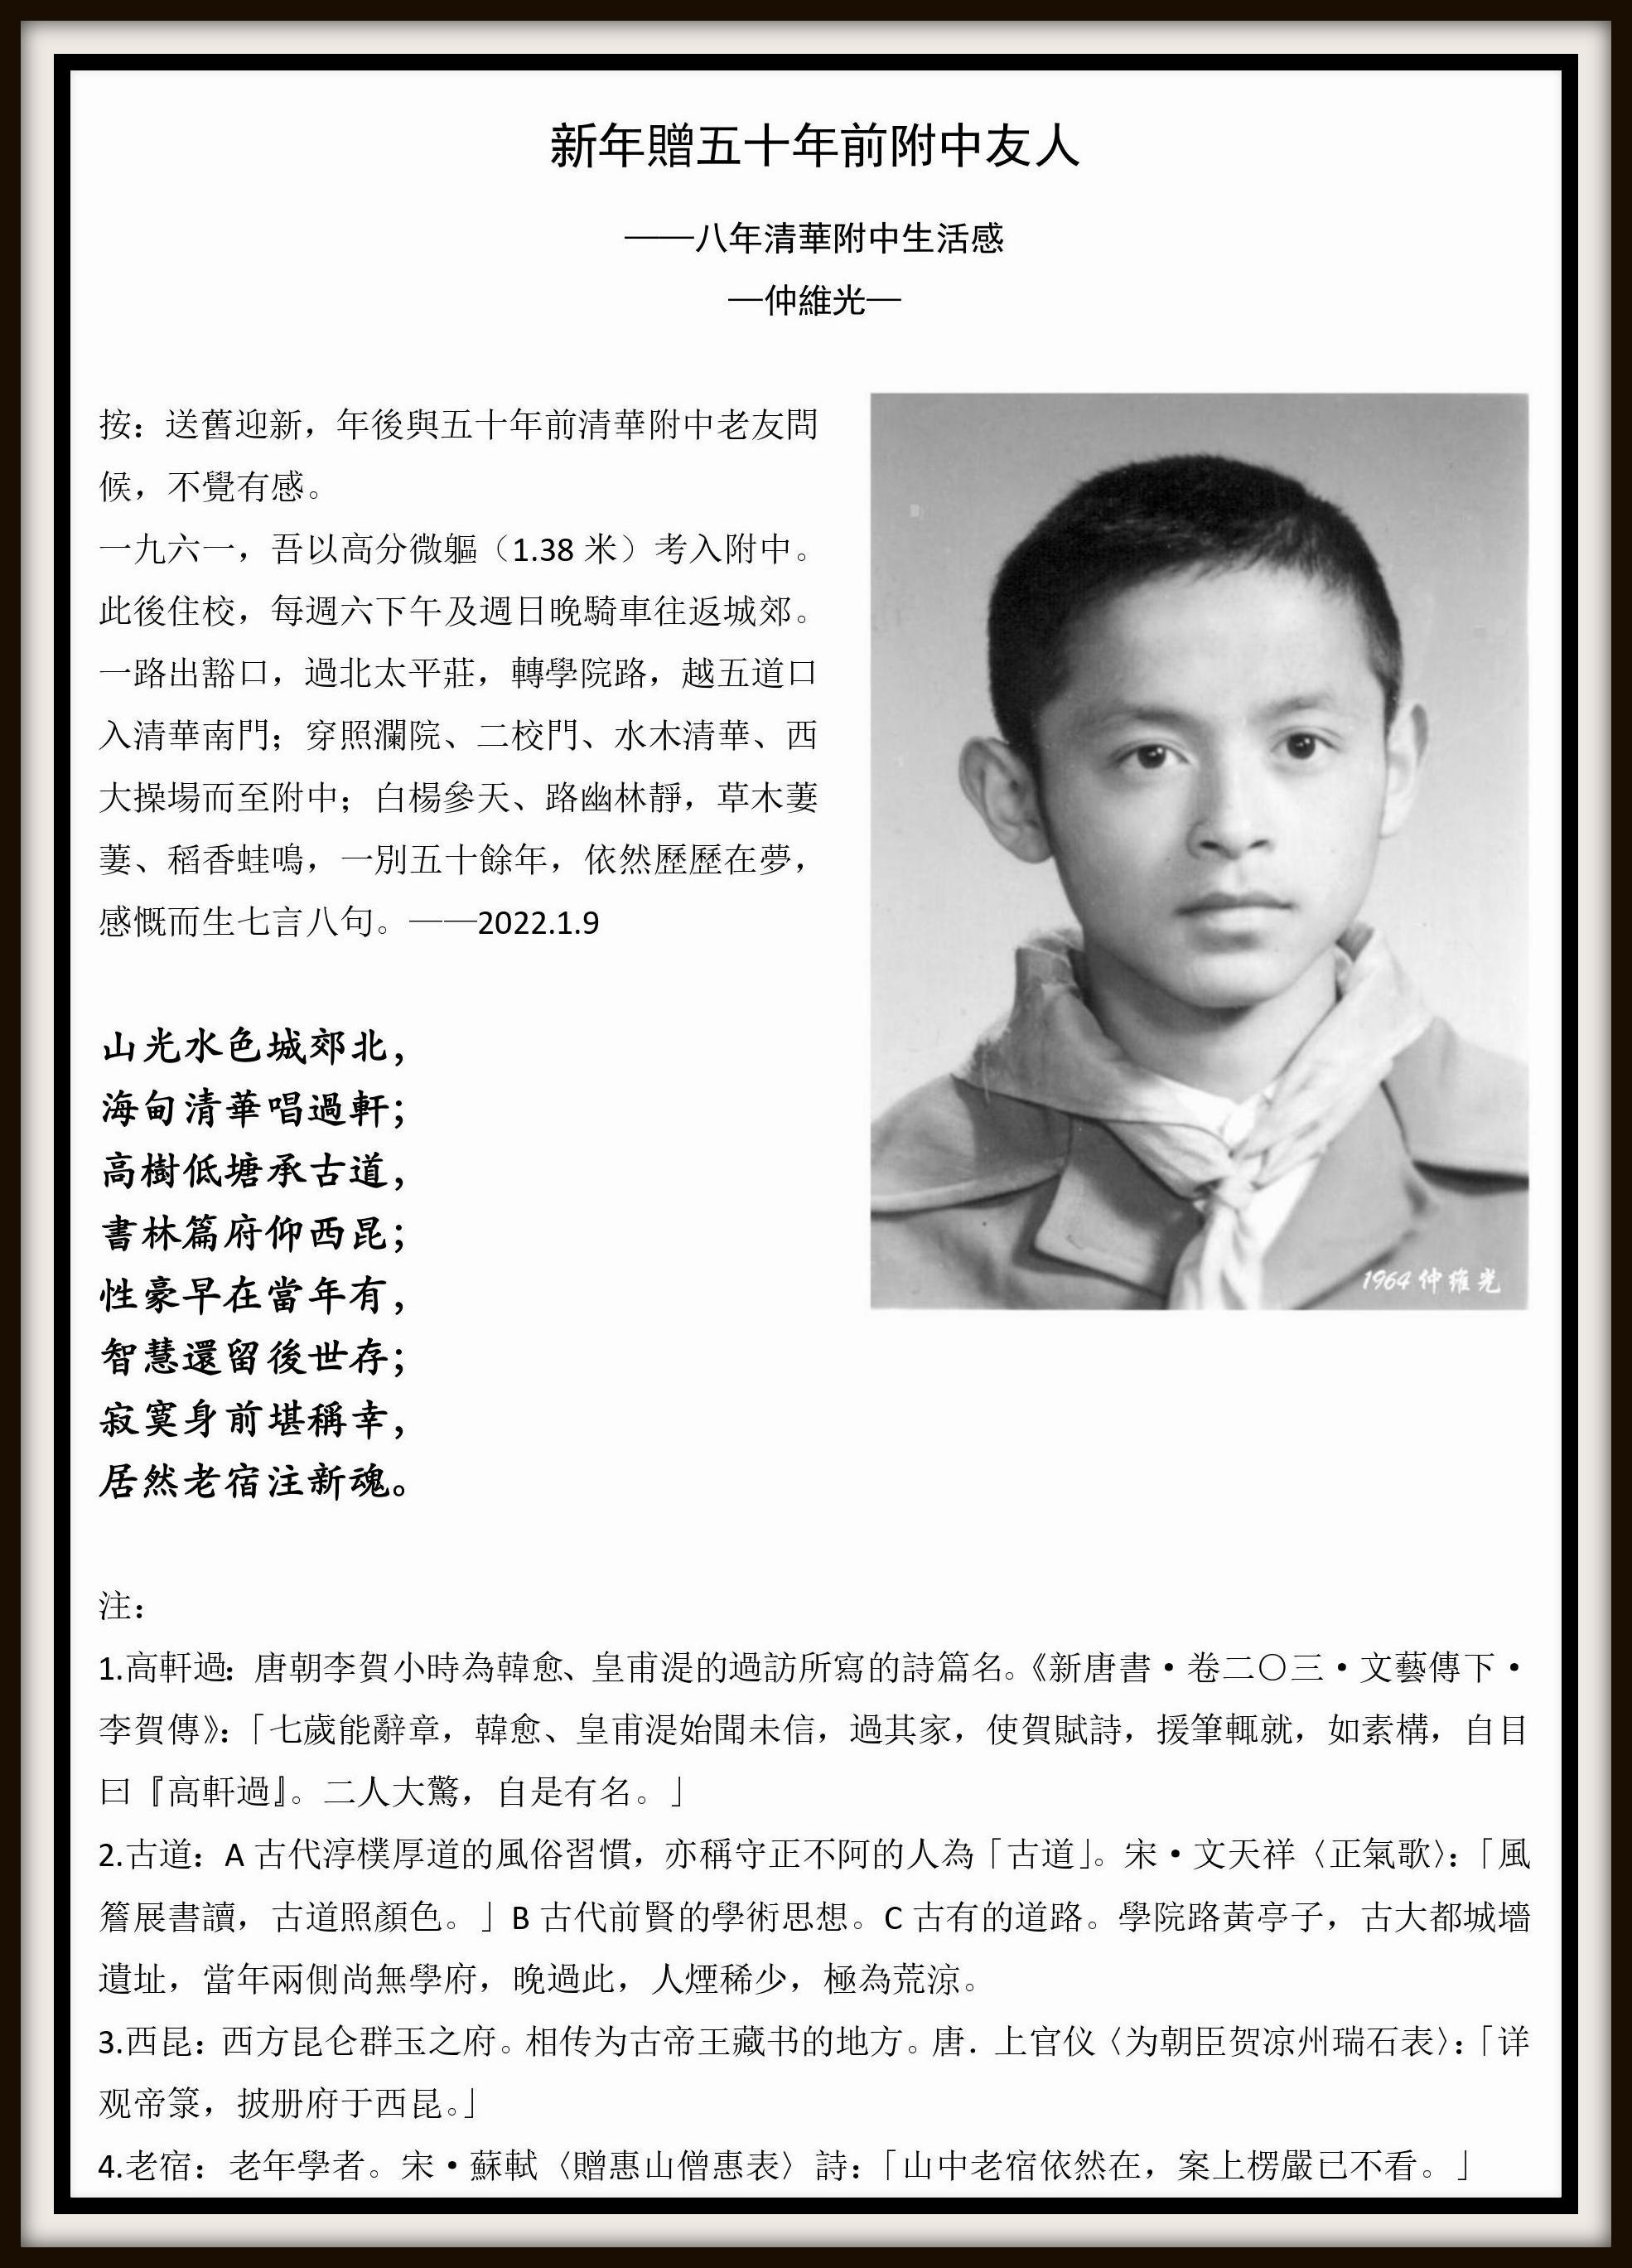 新年贈五十年前附中友人
——八年清華附中生活感
—仲維光—
按：送舊迎新，年後與五十年前清華附中老友問
候，不覺有感。
一九六一，吾以高分微軀（1.38 米）考入附中。
此後住校，每週六下午及週日晚騎車往返城郊。
一路出豁口，過北太平莊，轉學院路，越五道口
入清華南門；穿照瀾院、二校門、水木清華、西
大操場而至附中；白楊參天、路幽林靜，草木萋
萋、稻香蛙鳴，一別五十餘年，依然歷歷在夢，
感慨而生七言八句。——2022.1.9
山光水色城郊北，
海甸清華唱過軒；
高樹低塘承古道，
書林篇府仰西昆；
性豪早在當年有，
智慧還留後世存；
寂寞身前堪稱幸，
居然老宿注新魂。
1964 仲維光
注：
1.高軒過：唐朝李賀小時為韓愈、皇甫湜的過訪所寫的詩篇名。《新唐書•卷二〇三•文藝傳下•
李賀傳》：「七歲能辭章，韓愈、皇甫湜始聞未信，過其家，使賀賦詩，援筆輒就，如素構，自目
曰『高軒過』。二人大驚，自是有名。」
2.古道：A 古代淳樸厚道的風俗習慣，亦稱守正不阿的人為「古道」。宋•文天祥〈正氣歌〉：「風
簷展書讀，古道照顏色。」B 古代前賢的學術思想。C 古有的道路。學院路黃亭子，古大都城墻
遺址，當年兩側尚無學府，晚過此，人煙稀少，極為荒涼。
3.西昆：西方昆仑群玉之府。相传为古帝王藏书的地方。唐．上官仪〈为朝臣贺凉州瑞石表〉：「详
观帝箓，披册府于西昆。」
4.老宿：老年學者。宋•蘇軾〈贈惠山僧惠表〉詩：「山中老宿依然在，案上楞嚴已不看。」